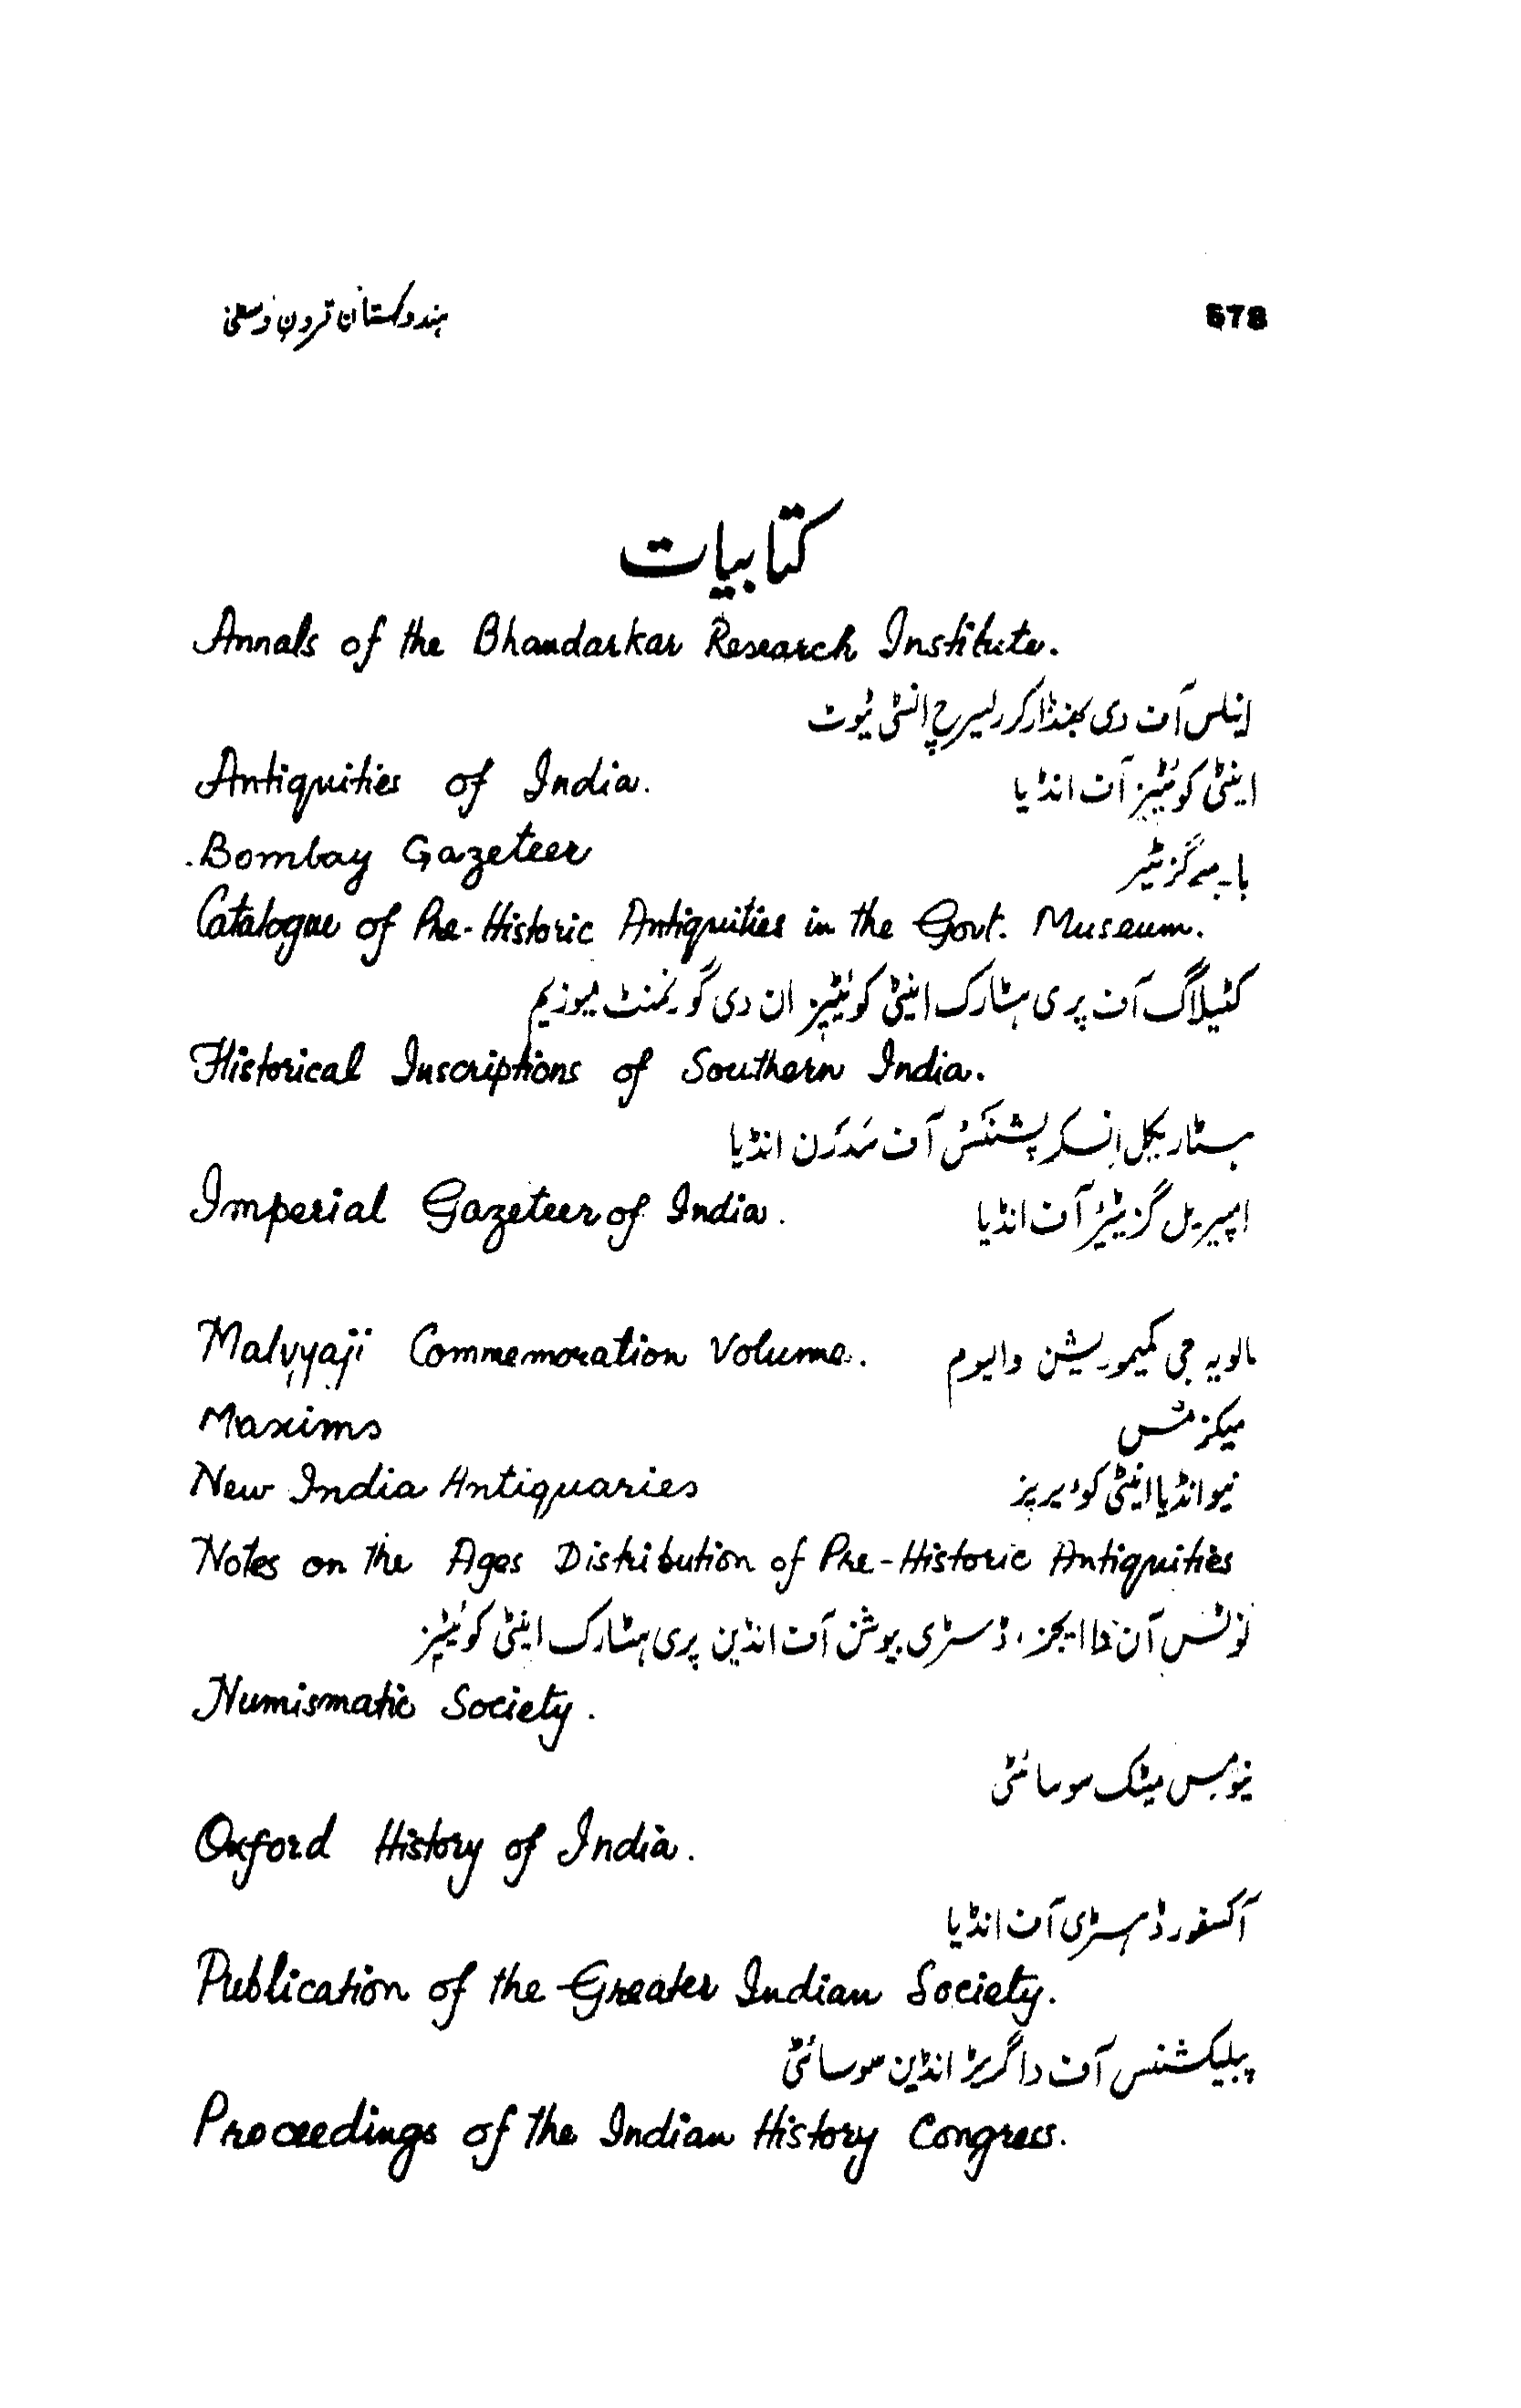 578
ہندوستان قرونِ وسطیٰ
کتابیات
Annals of the Bhandarkar Research Institute.
اینلس آف دی بھنڈارکر ریسرچ انسٹی ٹیوٹ
Antiquities of India.
اینٹی کوئٹیز آف انڈیا
Bombay Gazeteer
بامبے گزٹیر
Catalogue of Pre-Historic Antiquities in the Govt. Museum.
کٹیلاگ آف پری ہسٹارک اینٹی کوئٹیز ان دی گورنمنٹ میوزیم
Historical Inscriptions of Southern India.
ہسٹاریکل انسکرپشنس آف سدرن انڈیا
Imperial Gazeteer of India.
امپیریل گزیٹیر آف انڈیا
Malvyaji Commemoration Volume.
مالویہ جی کمیموریشن والیوم
Maxims
میکزمس
New India Antiquaries
نیو انڈیا اینٹی کوئیریز
Notes on the Ages Distribution of Pre-Historic Antiquities
نوٹس آن دا ایجز، ڈسٹری بیوشن آف انڈین پری ہسٹارک اینٹی کوئٹیز
Numismatic Society.
نیومس میٹک سوسائٹی
Oxford History of India.
آکسفورڈ ہسٹری آف انڈیا
Publication of the Greater Indian Society.
پبلیکشنس آف دا گریٹر انڈین سوسائٹی
Proceedings of the Indian History Congress.